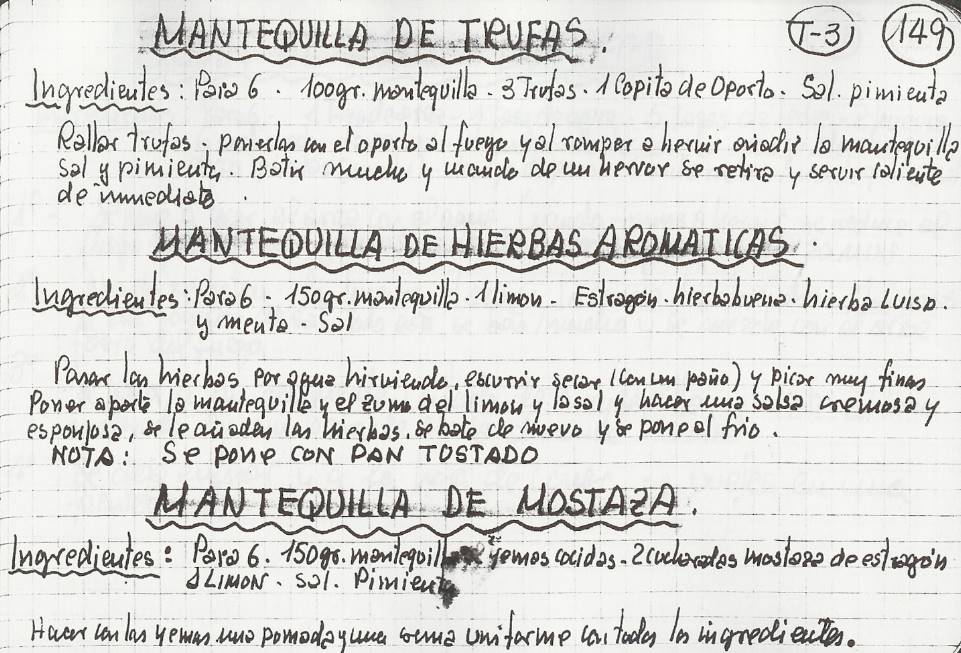 MANTEQUILLA DE TRUFAS. T-3 149
Ingredientes: Para 6. 100gr. mantequilla - 3 Trufas. 1 Copita de Oporto. Sal. pimienta
Rallar trufas. ponerlas con el oporto al fuego y al romper a hervir añadir la mantequilla
Sal y pimienta. Batir mucho y cuando de un hervor se retira y servir caliente
de inmediato.
MANTEQUILLA DE HIERBAS AROMATICAS.
Ingredientes: Para 6 - 150gr. mantequilla. 1 limon - Estragon. hierbabuena. hierba LUISA.
y menta - Sal
Pasar las hierbas por agua hirviendo, escurrir secar (con un paño) y picar muy finas
Poner aparte la mantequilla y el zumo del limon y la sal y hacer una salsa cremosa y
esponjosa, se le añaden las hierbas, se bate de nuevo y se pone al frio.
NOTA: Se pone CON PAN TOSTADO
MANTEQUILLA DE MOSTAZA.
Ingredientes: Para 6. 150gr. mantequilla yemas cocidas. 2 cucharadas mostaza de estragón
1 LIMON. Sal. Pimienta
Hacer con las yemas una pomada y una crema uniforme con todos los ingredientes.